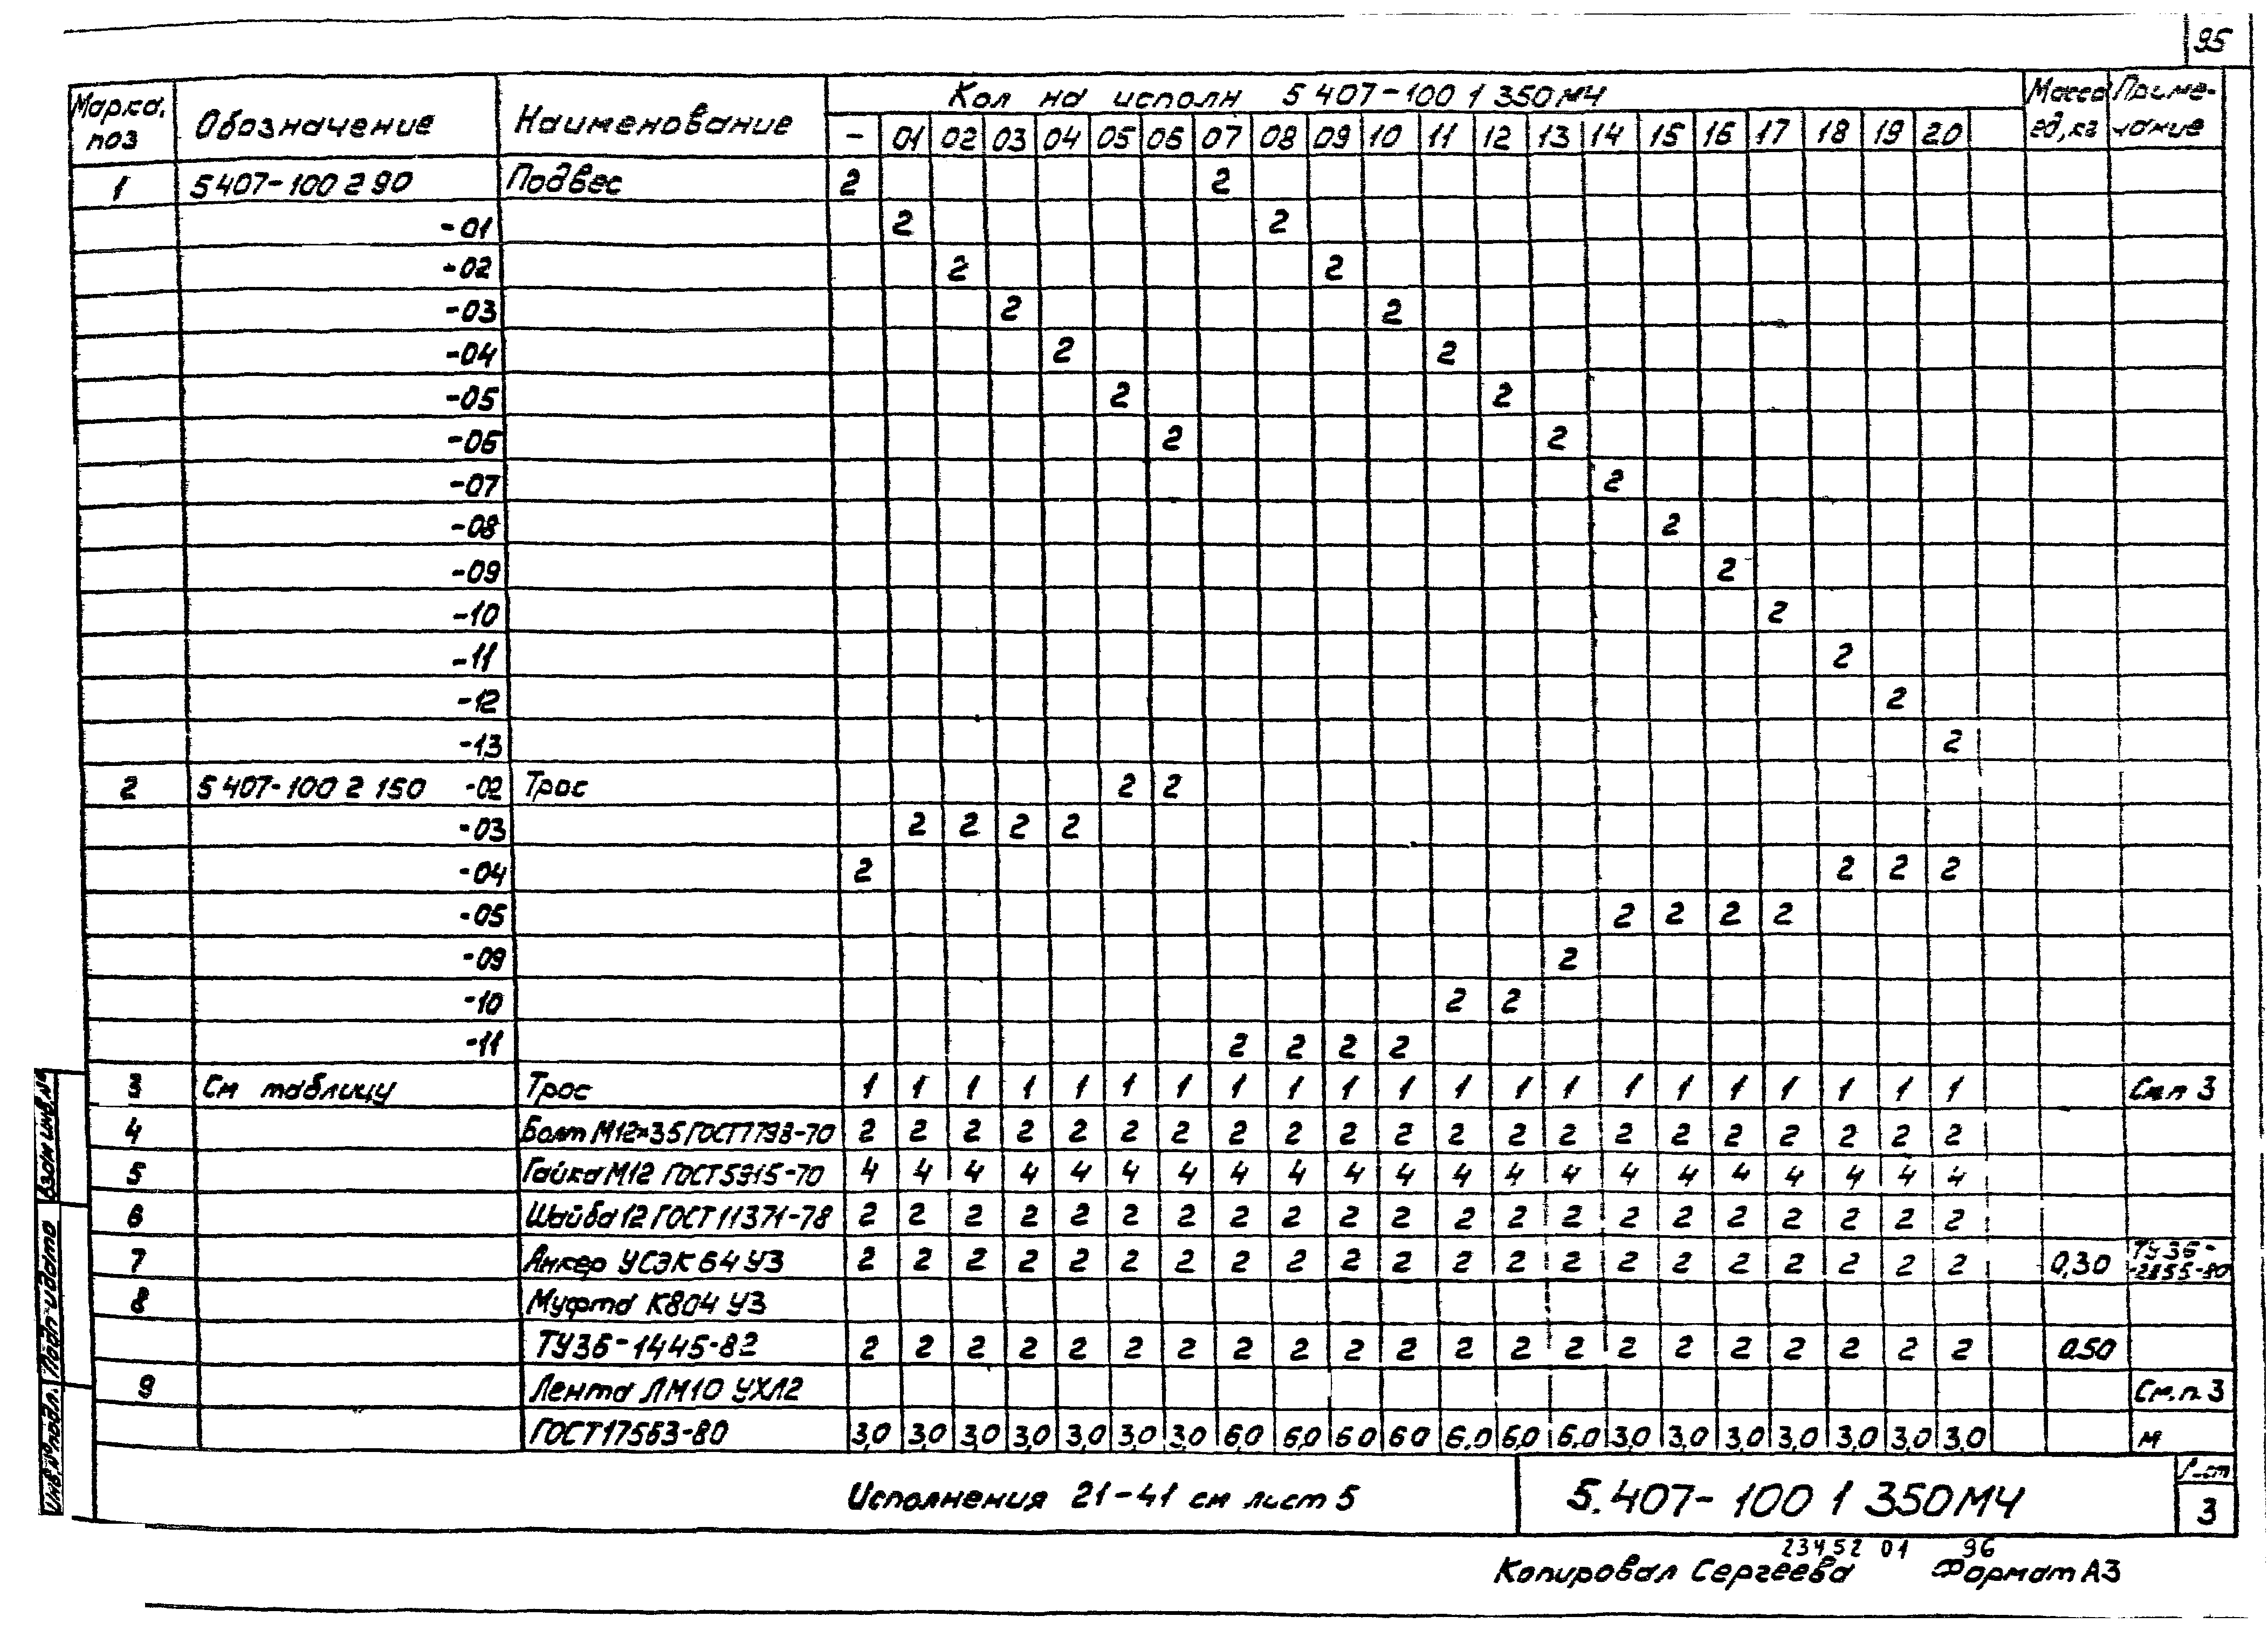 95
Марка, поз Обозначение Наименование Кол на исполн 5 407-100 1 350МЧ Масса ед, кг Приме-чание
- 01 02 03 04 05 06 07 08 09 10 11 12 13 14 15 16 17 18 19 20
1 5 407-100 2 90 Подвес 2 2
-01 2 2
-02 2 2
-03 2 2
-04 2 2
-05 2 2
-06 2 2
-07 2
-08 2
-09 2
-10 2
-11 2
-12 2
-13 2
2 5 407-100 2 150 -02 Трос 2 2
-03 2 2 2 2
-04 2 2 2 2
-05 2 2 2 2
-09 2
-10 2 2
-11 2 2 2 2
3 См таблицу Трос 1 1 1 1 1 1 1 1 1 1 1 1 1 1 1 1 1 1 1 1 1 См.п 3
4 Болт М12×35 ГОСТ 7798-70 2 2 2 2 2 2 2 2 2 2 2 2 2 2 2 2 2 2 2 2 2
5 Гайка М12 ГОСТ 5915-70 4 4 4 4 4 4 4 4 4 4 4 4 4 4 4 4 4 4 4 4 4
6 Шайба 12 ГОСТ 11371-78 2 2 2 2 2 2 2 2 2 2 2 2 2 2 2 2 2 2 2 2 2
7 Анкер УСЭК 64 У3 2 2 2 2 2 2 2 2 2 2 2 2 2 2 2 2 2 2 2 2 2 0,30 ТУ 36-
-2855-80
8 Муфта К804 У3
ТУ36-1445-82 2 2 2 2 2 2 2 2 2 2 2 2 2 2 2 2 2 2 2 2 2 0.50
9 Лента ЛМ10 УХЛ2 См.п.3
ГОСТ 17563-80 3,0 3,0 3,0 3,0 3,0 3,0 3,0 6,0 6,0 6 0 6 0 6.0 6,0 6,0 3,0 3,0 3,0 3,0 3,0 3,0 3,0 м
Исполнения 21-41 см лист 5
5.407-100 1 350МЧ
Лист
3
23452 01 96
Копировал Сергеева Формат А3
Взам инв.№
Подп. и дата
Инв.№ подл.